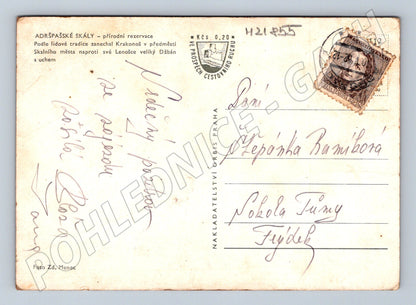 ADRŠPAŠSKÉ SKÁLY – přírodní rezervace
Podle lidové tradice zanechal Krakonoš v předměstí
Skalního města naproti své Lenošce veliký Džbán
s uchem
Kčs 0,20
VE PROSPĚCH CESTOVNÍHO RUCHU
H21855
Srdečný pozdrav
ze zájezdu
Paní
Štěpánka
Sokola Tůmy
Frýdek
NAKLADATELSTVÍ ORBIS PRAHA
Foto Zd. Menec
POHLEDNICE-